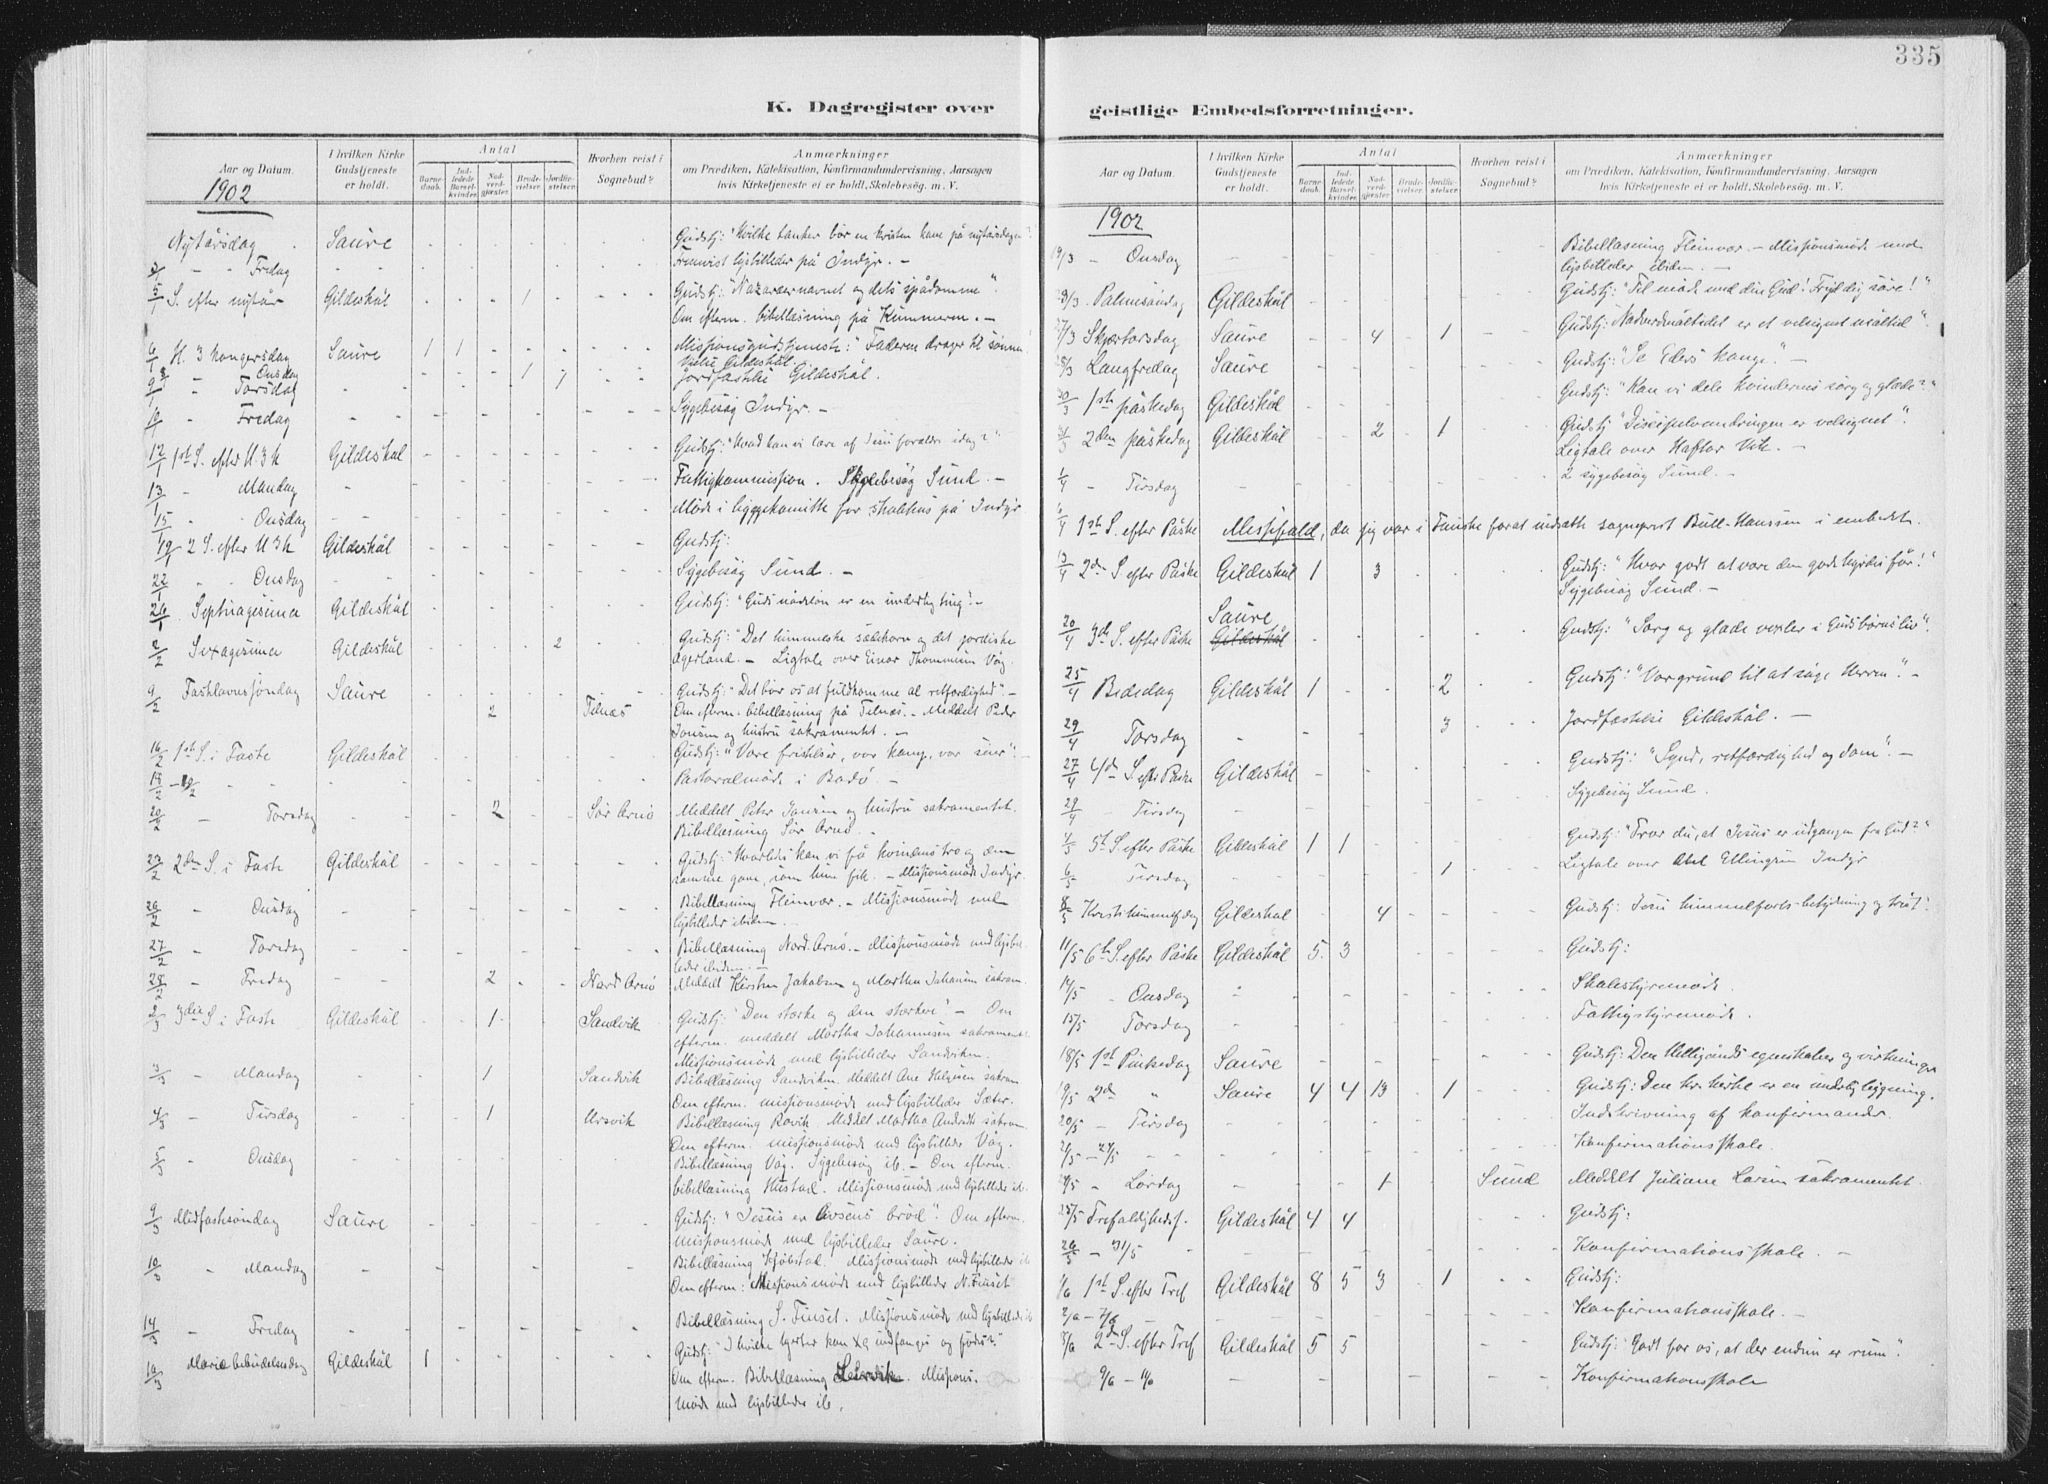 335
K. Dagregister over
Aar og Datum.
I hvilken Kirke Gudstjeneste er holdt.
Antal
Barnedaab.
Indledede Barselkvinder
Nadverdgjæster
Brudevielser
Jordfæstelser
Hvorhen reist i Sognebud?
Anmærkninger
om Prædiken, Katekisation, Konfirmandundervisning, Aarsagen
hvis Kirketjeneste ei er holdt, Skolebesøg. m. V.
1902
Nytårsdag Saure Gudstj: "Hvilke tanker bör en kristen have på nytårsdagen?
3/1 - - Fredag Fremvist lysbilleder på Indyr. -
5/1 S. efter nytår Gildeskål 1 Gudstj: "Nazaræernavnet og dets spådomme".
Om efterm. bibellæsning på Kummeren. -
6/1 H. 3 kongersdag Saure 1 1 Missionsgudstjeneste: "Faderen drager til sönnen
8/1 Onsdag 1 Vielse Gildeskål.
9/1 " Torsdag 1 Jordfæstelse Gildeskål.
10/1 " Fredag Sygebesøg Indyr. -
12/1 1st S. efter H 3 k Gildeskål Gudstj: "Hvad kan vi lære af Jesu forældre idag?"
13/1 " Mandag Fattigkommission. Sygebesøg Sund. -
15/1 " Onsdag Møde i byggekomitte for skolehus på Indyr
19/1 2 S. efter H 3 k Gildeskål Gudstj:
22/1 " Onsdag Sygebesøg Sund. -
26/1 Septuagesima Gildeskål Gudstj: "Guds nådelön er en underlig ting". -
2/2 Sexagesima Gildeskål 2 Gudstj: "Det himmelske sædekorn og det jordiske
agerland. - Ligtale over Einar Thommesen Våg.
9/2 Fastelavnssöndag Saure Gudstj: "Det bör os at fuldkomme al retfærdighed". -
2 Telnæs Om efterm. bibellæsning på Telnæs. - Meddelt Peder
Jensen og hustru sakramentet. -
16/2 1st S. i Faste Gildeskål Gudstj: "Vore fristelser, vor kamp, vor seier". -
18/2 - 19/2 Pastoralmøde i Bodø -
20/2 - Torsdag 2 Sör Arnö Meddelt Peter Jensen og hustru sakramentet.
Bibellæsning Sör Arnö. -
23/2 2den S. i Faste Gildeskål Gudstj: "Hvorledes kan vi få kvindens tro og den
samme gave, som hun fik. - Missionsmøde Indyr.
26/2 - Onsdag Bibellæsning Fleinvær. - Missionsmøde med
lysbilleder ibiden. -
27/2 - Torsdag Bibellæsning Nord. Arnö. - Missionsmøde med lysbil-
leder ibidem. -
28/2 - Fredag 2 Nord Arnö Meddelt Kirsten Jakobsen og Marthea Johansen sakram.
2/3 3die S i Faste Gildeskål 1 Sandvik Gudstj: "Den stærke og den stærkere" - Om
efterm. meddelt Martha Johannesen sakramentet.
Missionsmøde med lysbilleder Sandviken.
3/3 - Mandag 1 Sandvik Bibellæsning Sandviken. Meddelt Ane Helgesen sakram
Om efterm. missionsmøde med lysbilleder Sæter.
4/3 - Tirsdag 1 Arsvik Bibellæsning Rovik. Meddelt Martha Andersdt sakram
Om efterm. missionsmøde med lysbilleder Våg.
5/3 - Onsdag Bibellæsning Våg. Sygebesøg ib. - Om efterm.
bibellæsning Hustad. Missionsmøde med lysbilleder ib.
9/3 Midfastesöndag Saure Gudstj: "Jesus er livsens bröd". Om efterm.
missionsmøde med lysbilleder Saure.
10/3 " Mandag Bibellæsning Kjöbstad. Missionsmøde med lysbilleder ib
Om efterm: Missionsmøde med lysbilleder N. Finset
14/3 - Fredag Bibellæsning S. Finset. Missionsmøde med lysbilleder ib
16/3 Mariæ bebudelsesdag Gildeskål 1 Gudstj: "I hvilke hjerter kan Xs undfanges og födes?"
Om efterm. Bibellæsning Leirvik. Missions-
møde med lysbilleder ib.
geistlige Embedsforretninger.
Aar og Datum.
I hvilken Kirke Gudstjeneste er holdt.
Antal
Barnedaab.
Indledede Barselkvinder
Nadverdgjæster
Brudevielser
Jordfæstelser
Hvorhen reist i Sognebud?
Anmærkninger
om Prædiken, Katekisation, Konfirmandundervisning, Aarsagen
hvis Kirketjeneste ei er holdt, Skolebesøg. m. V.
1902
19/3 - Onsdag Bibellæsning Fleinvær. - Missionsmøde med
lysbilleder ibiden. -
23/3 Palmesöndag Gildeskål Gudstj: "Til møde med din Gud! Fryd dig såre!"
27/3 Skjærtorsdag Saure 4 1 Gudstj: Nadverdmåltidet er et velsignet måltid".
28/3 Langfredag Saure Gudstj: "Se Eders konge". -
30/3 1ste påskedag Gildeskål Gudstj: "Kan vi dele kvindernes sorg og glæde?"
31/3 2den påskedag Gildeskål 2 1 Gudstj "Discipelvandringen er velsignet".
Ligtale over Haftor Vik. -
1/4 - Tirsdag 2 sygebesøg Sund. -
6/4 1ste S. efter Påske Messefald, da jeg var i Fauske forat indsætte sogneprest Bull-Hanssen i embedet.
13/4 2den S efter Påske Gildeskål 1 3 Gudstj: "Hvor godt at være den gode hyrdes får!"
Sygebesøg Sund. -
20/4 3die S. efter Påske Saure Gildeskål Gudstj: "Sorg og glæde vexler i Guds börns liv".
25/4 Bededag Gildeskål 1 2 Gudstj: "Vor grund til at søge Herren". -
29/4 Torsdag 3 Jordfæstelse Gildeskål. -
27/4 4de S efter Påske Gildeskål Gudstj: "Synd, retfærdighed og dom". -
29/4 - Tirsdag Sygebesøg Sund.
4/5 5te S. efter Påske Gildeskål 1 1 Gudstj: "Tror du, at Jesus er udgangen fra Gud?"
6/5 Tirsdag 1 Ligtale over Ellingsen Indyr
8/5 Kristi himmelf.dag Gildeskål 4 Gudstj: Jesu himmelfarts betydning og tröst".
11/5 6te S. efter Påske Gildeskål 5 3 Gudstj:
14/5 " Onsdag Skolestyremøde.
15/5 Torsdag Fattigstyremøde.
18/5 1st Pinsedag Saure Gudstj: Den Helligånds egenskaber og virkninger
19/5 2den " Saure 4 4 13 1 Gudstj: Den kr. kirke er en underlig bygning.
20/5 - Tirsdag Indskrivning af konfirmander.
21/5 - 24/5 Konfirmationsskole.
24/5 - Lørdag 1 Sund Meddelt Juliane Larsen sakramentet.
25/5 Trefoldighedsf. Gildeskål 4 4 Gudstj:
26/5 - 31/5 Konfirmationsskole. -
1/6 1st S. efter Tref Gildeskål 8 5 3 1 Gudstj:
2/6 - 7/6 Konfirmationsskole. -
8/6 2d S. efter Tref Gildeskål 5 5 Gudstj: "Godt for os, at der endnu er rum".
9/6 - 11/6 Konfirmationsskole